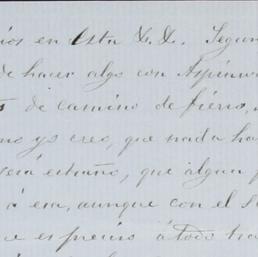 ios en esta &. &. Segun
de hacer algo con Aspinwa
de camino de fierro,
yo creo, que nada ha
será estraño, que algun p
á esa, aunque con el
es preciso á todo tra